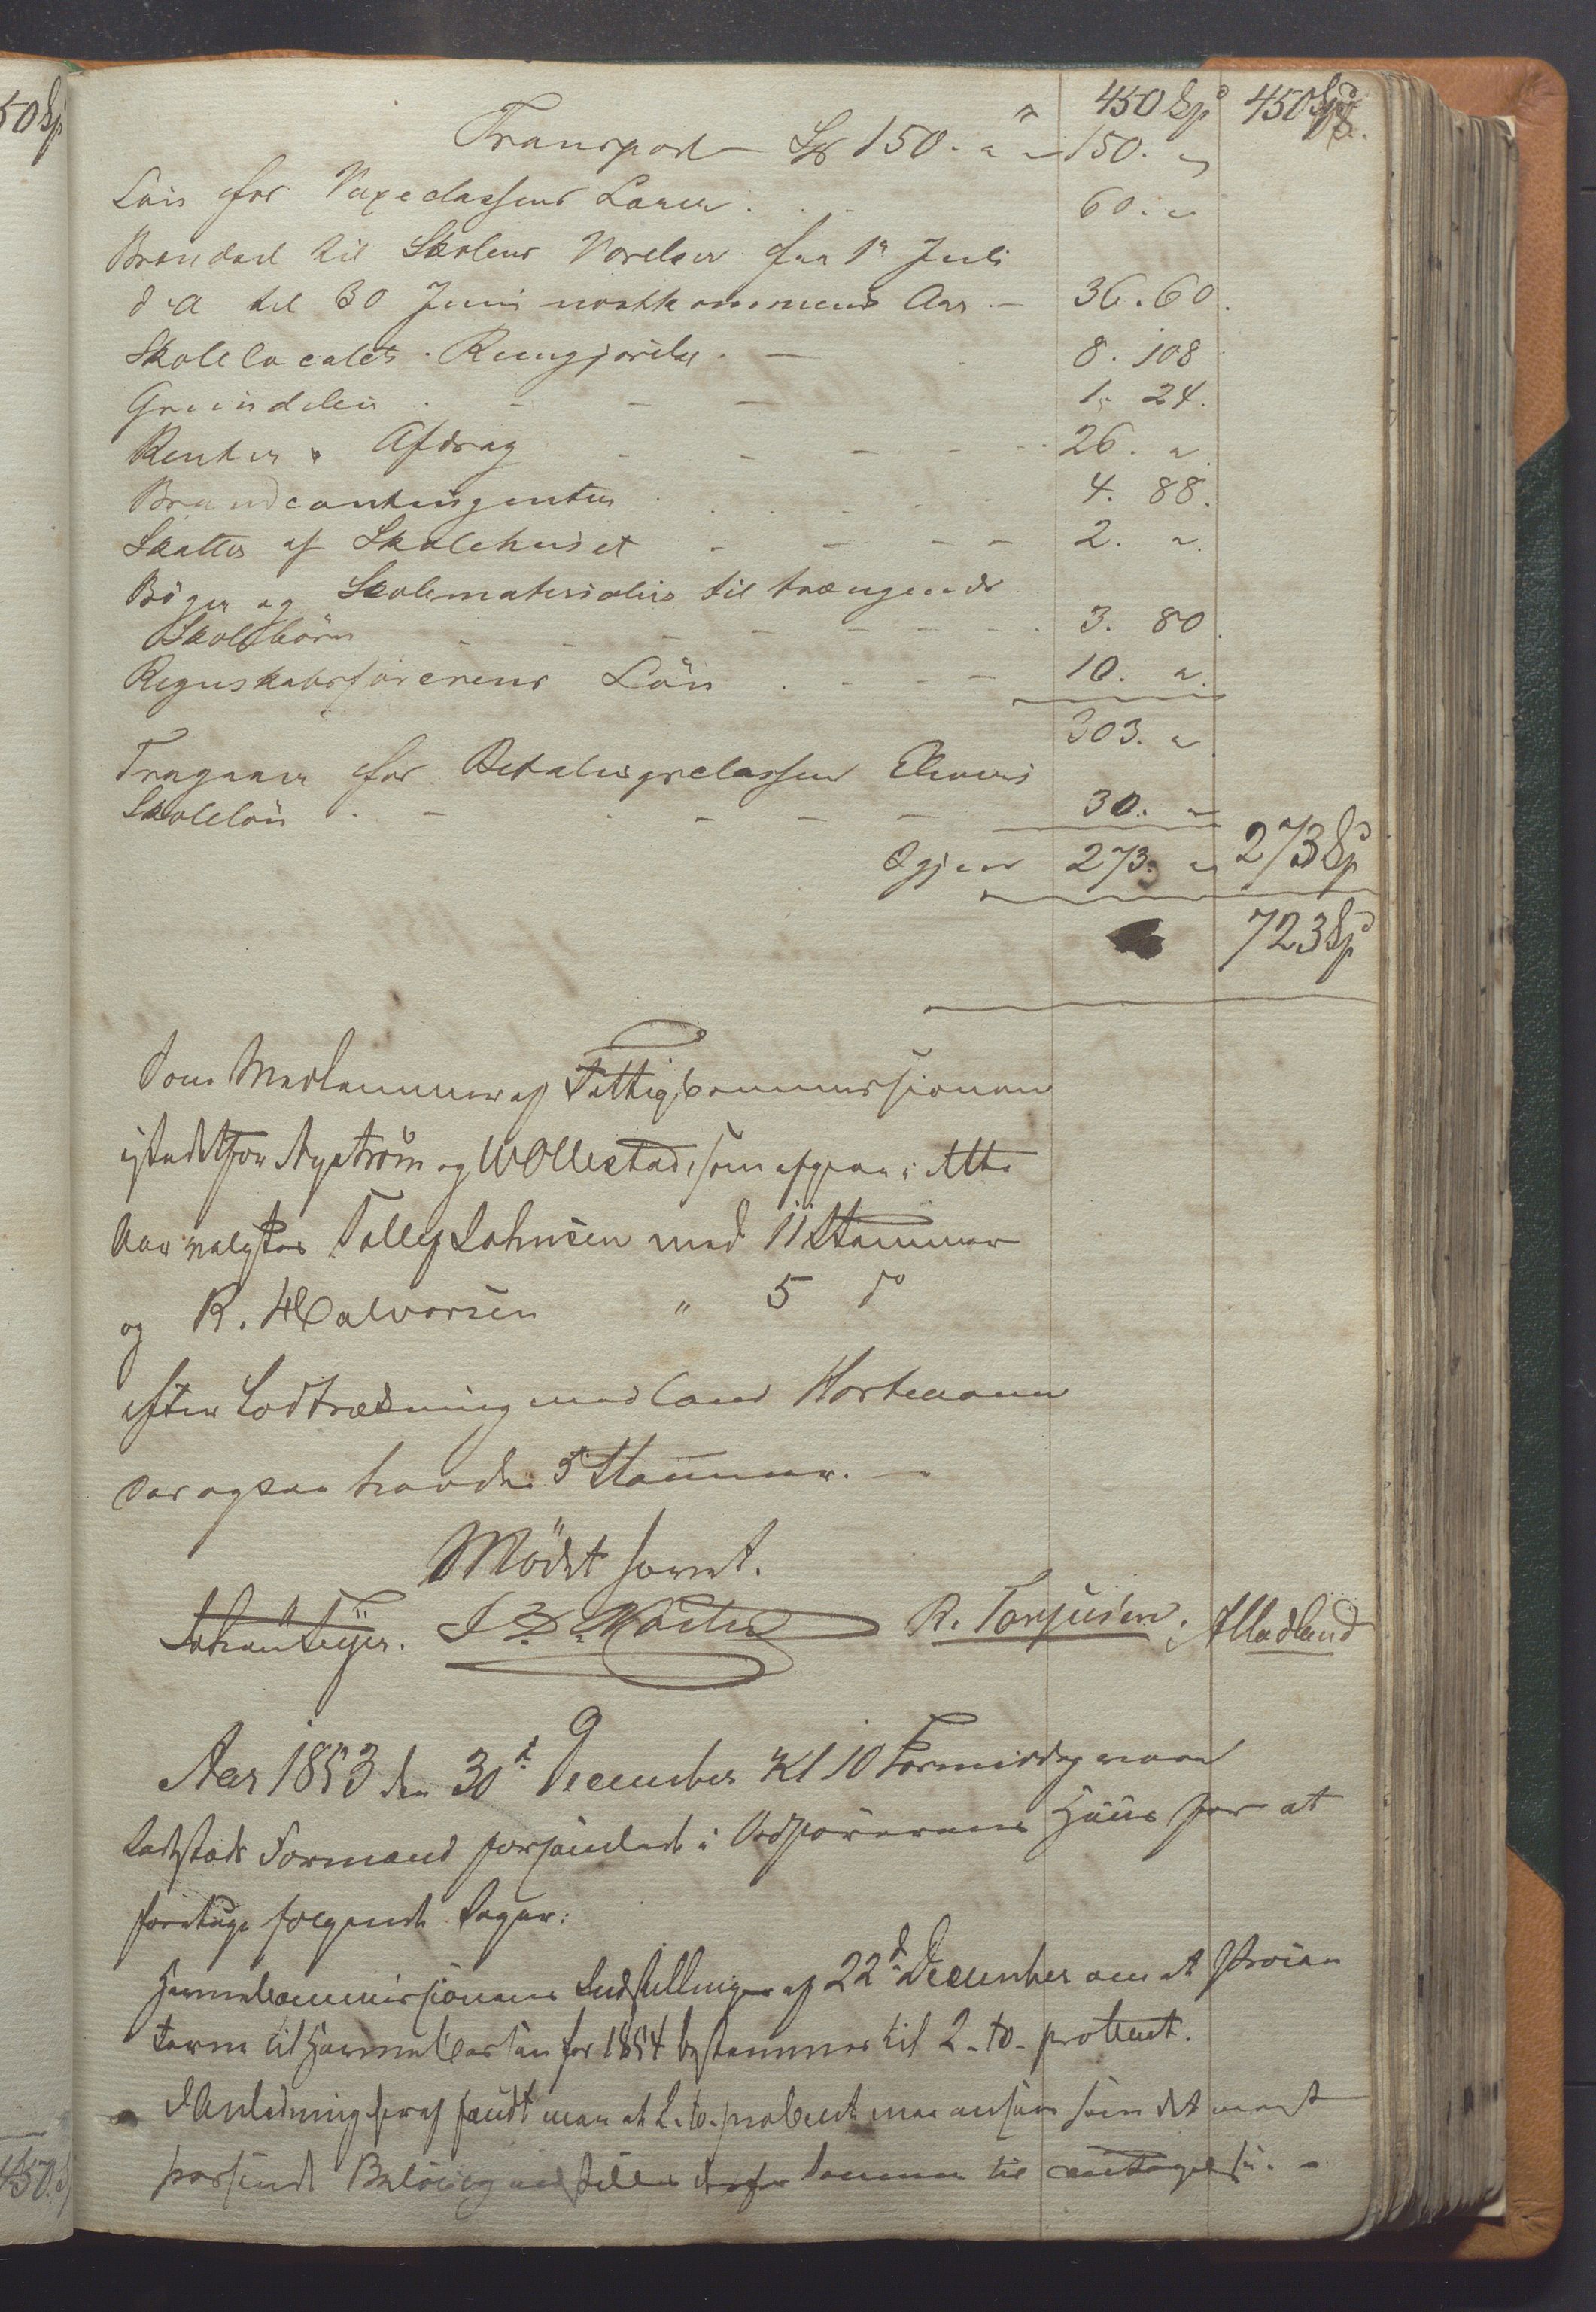 450 Spd 450 Spd.
Transport Spd 150. " " 150. "
Løn for Vaxeclassens Lærer. . . 60. "
Brændsel til Skolens Værelser fra 1e Juli
d. A til 30 Juni næstkommende Aar. – 36. 60.
Skolelocalets Rengjørelse. – 8. 108
Grundleien . – – – 1. 24.
Renter & Afdrag – – – 26. "
Brandcontingenten . . . 4. 88.
Skatter af Skolehuset – – – – 2. "
Bøger og Skolematerialier til trængende
Skolebørn – – – – – 3. 80.
Regnskabsførerens Løn . . – – 10. "
303. "
Fragaaer for Betalingsclassens Elevers
Skoleløn . – . – – – 30. "
Igjen 273. " 273 Spd
723 Spd
Som Medlemmer af Fattigcommissionen
istedetfor Nyström og W Ollestad, som afgaae i dette
Aar valgtes Tollef Johnsen med 11 Stemmer
og R. Halvorsen " 5 do
efter Lodtrækning med Cand Hartmann
der ogsaa havde 5 Stemmer. –
Mødet hævet.
Johan Feyer. R. Torjusen. A Madland
Aar 1853 den 30te December Kl 10 Formiddag vare
Ladstedets Formænd forsamlede i Ordførerens Huus for at
foretage følgende Sager:
Havnecommissionens Indstilling af 22d December om at
til Havnecassen for 1854 bestemmes til 2 to procent.
I Anledning heraf fandt man at 2 to procent maa ansees som det meest
passende Beløb og indstilles derfor Summen til Antagelse. –